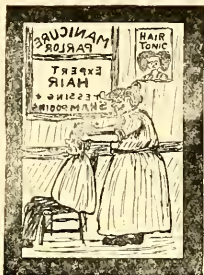 MANICURE
PARLOR
EXPERT
HAIR
DRESSING &
SHAMPOOING
HAIR
TONIC